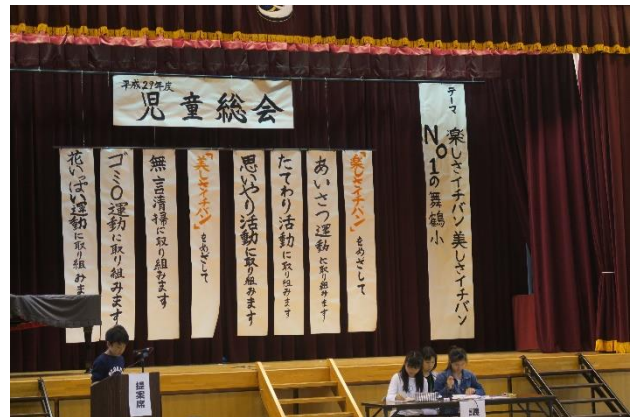 平成29年度
児童総会
テーマ
楽しさイチバン 美しさイチバン
NO1の舞鶴小
「楽しさイチバン」をめざして
あいさつ運動に取り組みます
たてわり活動に取り組みます
思いやり活動に取り組みます
「美しさイチバン」をめざして
無言清掃に取り組みます
ゴミ0運動に取り組みます
花いっぱい運動に取り組みま
提案席
議